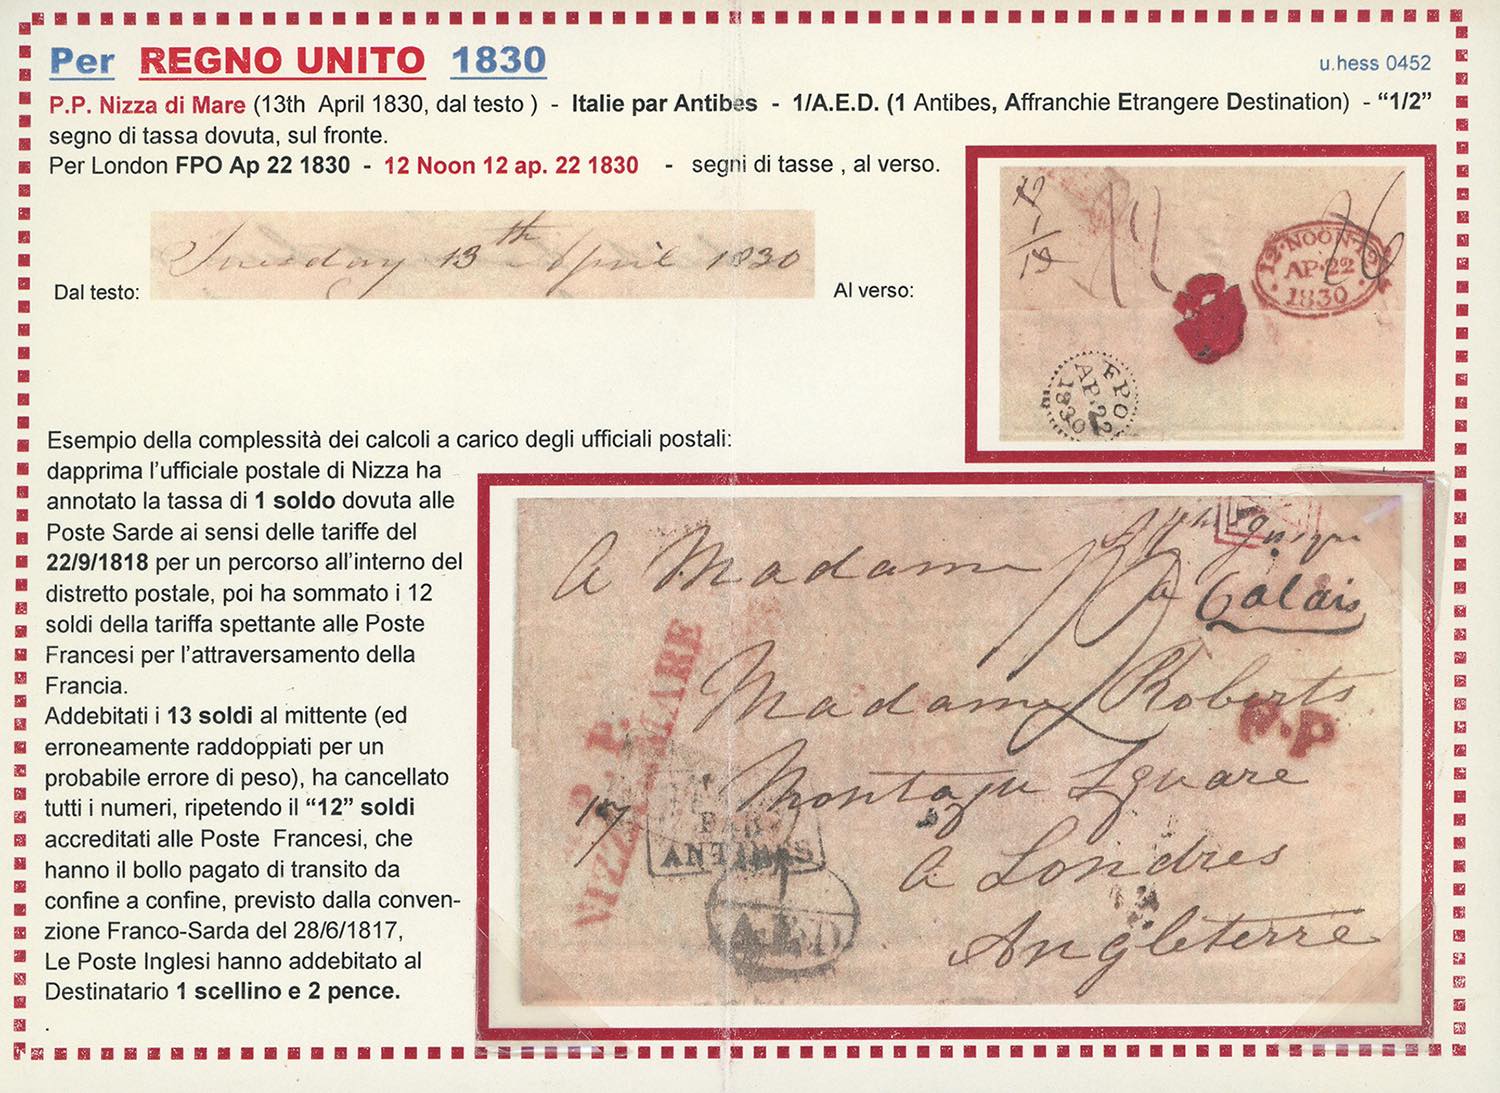 Per REGNO UNITO 1830
u.hess 0452
P.P. Nizza di Mare (13th April 1830, dal testo ) - Italie par Antibes - 1/A.E.D. (1 Antibes, Affranchie Etrangere Destination) - “1/2”
segno di tassa dovuta, sul fronte.
Per London FPO Ap 22 1830 - 12 Noon 12 ap. 22 1830 - segni di tasse , al verso.
Tuesday 13th April 1830
Dal testo:
Al verso:
12
1
13
12·NOON·12
AP·22
·1830·
FPO
AP·22
1830
Esempio della complessità dei calcoli a carico degli ufficiali postali:
dapprima l’ufficiale postale di Nizza ha
annotato la tassa di 1 soldo dovuta alle
Poste Sarde ai sensi delle tariffe del
22/9/1818 per un percorso all’interno del
distretto postale, poi ha sommato i 12
soldi della tariffa spettante alle Poste
Francesi per l’attraversamento della
Francia.
Addebitati i 13 soldi al mittente (ed
erroneamente raddoppiati per un
probabile errore di peso), ha cancellato
tutti i numeri, ripetendo il “12” soldi
accreditati alle Poste Francesi, che
hanno il bollo pagato di transito da
confine a confine, previsto dalla conven-
zione Franco-Sarda del 28/6/1817,
Le Poste Inglesi hanno addebitato al
Destinatario 1 scellino e 2 pence.
.
A Madame
a Calais
Madame Roberts
P.P.
Montagu Square
A Londres
Angleterre
P.P.
NIZZA MARE
PAR
ANTIBES